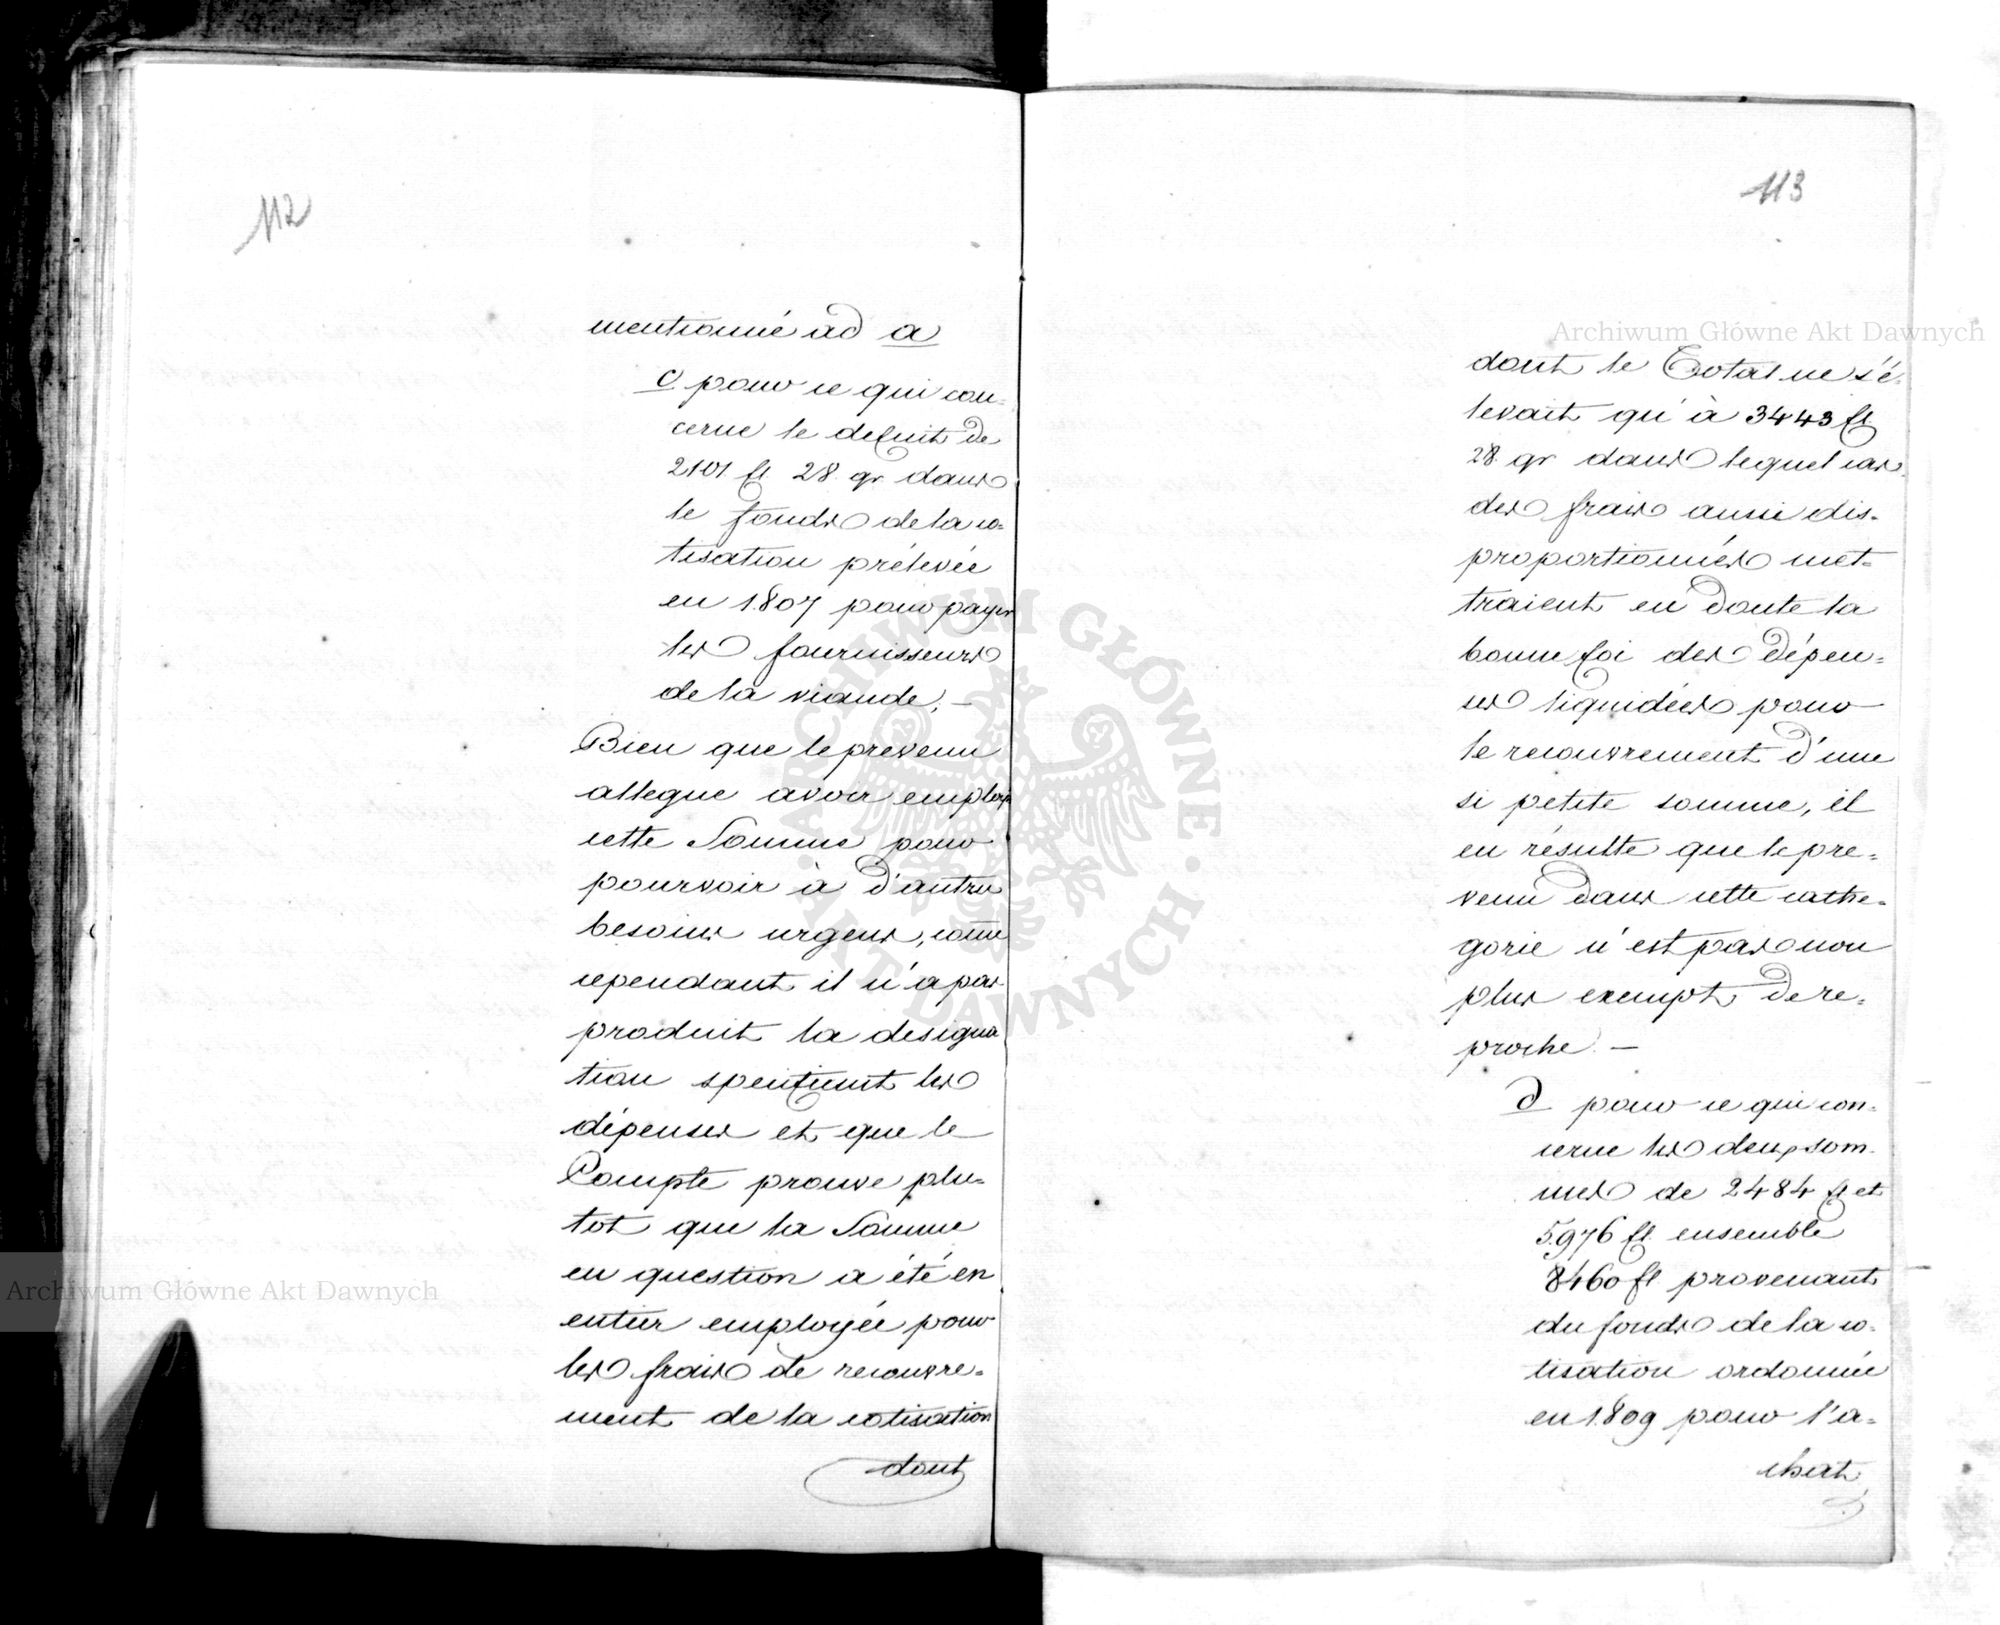 112
mentionné ad a
c pour ce qui con=
cerne le deficit de
2101 fl. 28 gr dans
le fonds de la co=
tisation prélevée
en 1807 pour payer
les fournisseurs
de la viande, —
Bien que le prevenu
allegue avoir employé
cette Somme pour
pourvoir à d'autres
besoins urgens, come
cependant il n'a pas
produit la designa
tion specifiant les
dépenses et que le
Compte prouve plu=
tot que la Somme
en question a été en
entier employée pour
les frais de recouvre=
ment de la cotisation
dont
113
dont le Total ne s'é=
levait qu'à 3443 fl.
28 gr dans lequel cas
des frais aussi dis=
proportionnés met=
traient en doute la
bonne foi des dépen=
ses liquidées pour
le recouvrement d'une
si petite somme, il
en résulte que le pre=
venu dans cette cathe=
gorie n'est pas non
plus exempt de re=
proche. —
d pour ce qui con=
cerne les deux som=
mes de 2484 fl et
5976 fl. ensemble
8460 fl provenant
du fonds de la co=
tisation ordonnée
en 1809 pour l'a=
chat
Archiwum Główne Akt Dawnych
Archiwum Główne Akt Dawnych
ARCHIWUM GŁÓWNE · AKT DAWNYCH ·